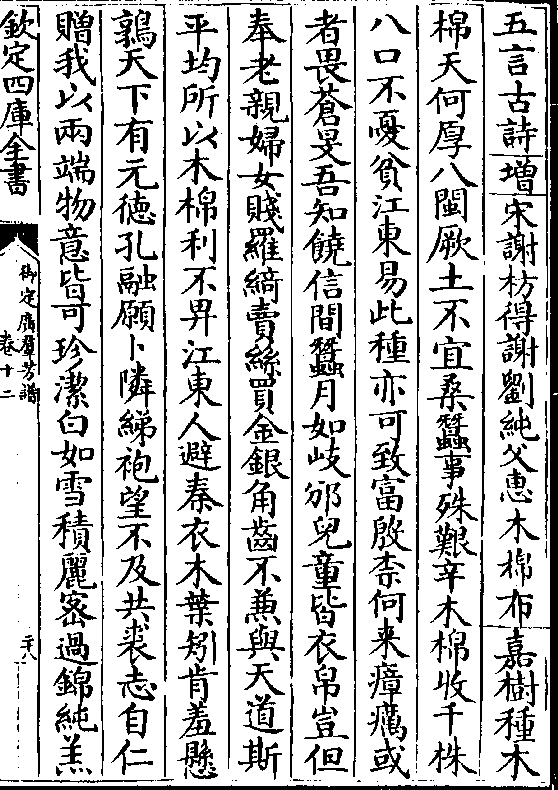 五言古詩增宋謝枋得謝劉純父惠木棉布嘉樹種木
棉天何厚八閩厥土不宜桑蠶事殊艱辛木棉收千株
八口不憂貧江東易此種亦可致富殷柰何来瘴癘或
者畏蒼旻吾知饒信間蠶月如岐邠兒童皆衣帛豈但
奉老親婦女賤羅綺賣絲買金銀角齒不兼與天道斯
平均所以木棉利不畀江東人避秦衣木葉矧肯羞懸
鶉天下有元德孔融願卜隣綈袍望不及共裘志自仁
贈我以兩端物意皆可珍潔白如雪積麗密過錦純羔
欽定四庫全書
御定廣羣芳譜
卷十二
二十八